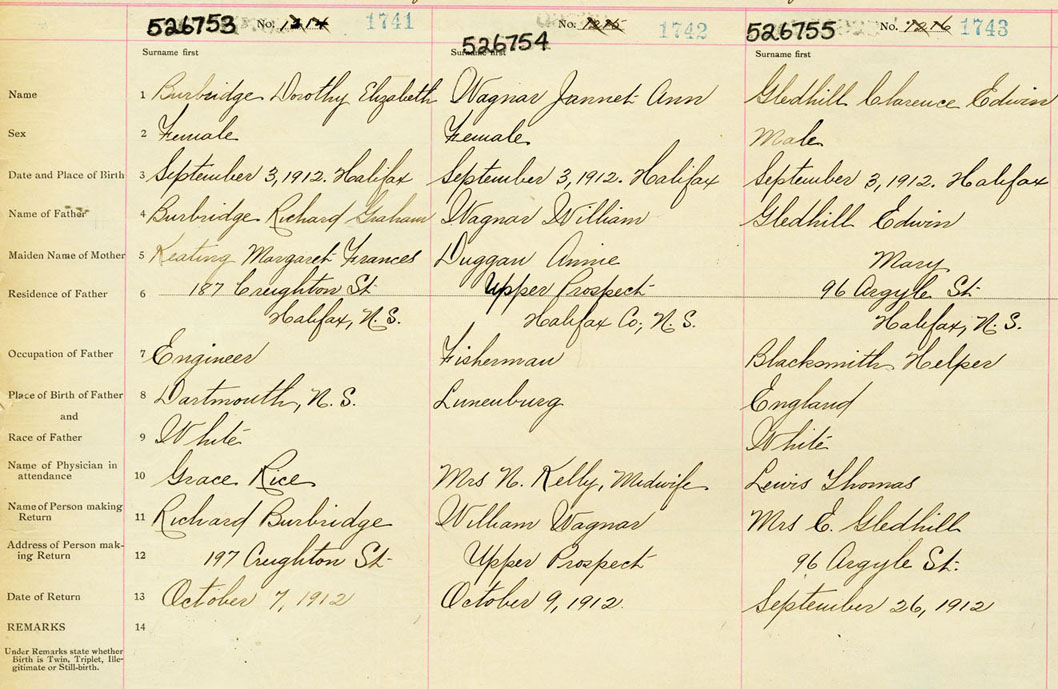 526753 No. 1314 1741 526754 No. 1315 1742 526755 No. 1316 1743
Surname first Surname first Surname first
Name 1 Burbridge Dorothy Elizabeth Wagnar Jannet Ann Gledhill Clarence Edwin
Sex 2 Female Female Male
Date and Place of Birth 3 September 3, 1912. Halifax September 3, 1912. Halifax September 3, 1912. Halifax
Name of Father 4 Burbridge Richard Graham Wagnar William Gledhill Edwin
Maiden Name of Mother 5 Keating Margaret Frances Duggan Annie Mary
Residence of Father 6 187 Creighton St. Upper Prospect 96 Argyle St.
Halifax, N.S. Halifax Co., N.S. Halifax, N.S.
Occupation of Father 7 Engineer Fisherman Blacksmith Helper
Place of Birth of Father 8 Dartmouth, N.S. Lunenburg England
and
Race of Father 9 White White
Name of Physician in
attendance 10 Grace Rice Mrs N. Kelly, Midwife Lewis Thomas
Name of Person making
Return 11 Richard Burbridge William Wagnar Mrs E. Gledhill
Address of Person mak-
ing Return 12 197 Creighton St. Upper Prospect 96 Argyle St.
Date of Return 13 October 7, 1912 October 9, 1912. September 26, 1912
REMARKS 14
Under Remarks state whether
Birth is Twin, Triplet, Ille-
gitimate or Still-birth.